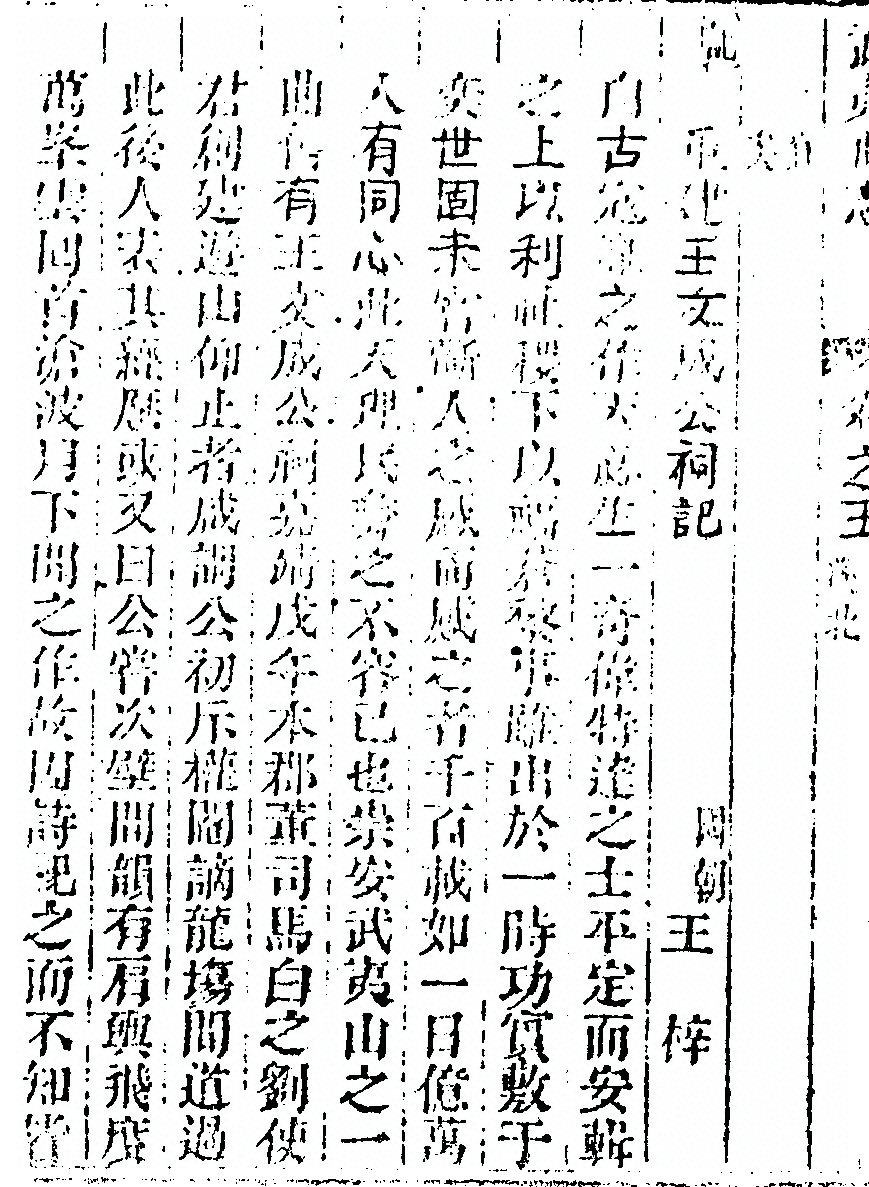 記
重建王文成公祠記
國朝 王梓
自古寇亂之作天必生一奇偉特達之士平定而安輯
之上以利社稷下以福蒼黎事雖出於一時功實敷于
奕世固未嘗斯人之感而感之者千百載如一日億萬
人有同心此天理民彝之不容已也崇安武夷山之一
曲舊有王文成公祠嘉靖戊午本郡董司馬白之劉使
君創建遊山仰止者咸謂公初斥權閹謫龍場間道過
此後人表其經歷或又曰公嘗次壁間韻有肩輿飛度
萬峯雲回首滄波月下聞之作故因詩祀之而不知當